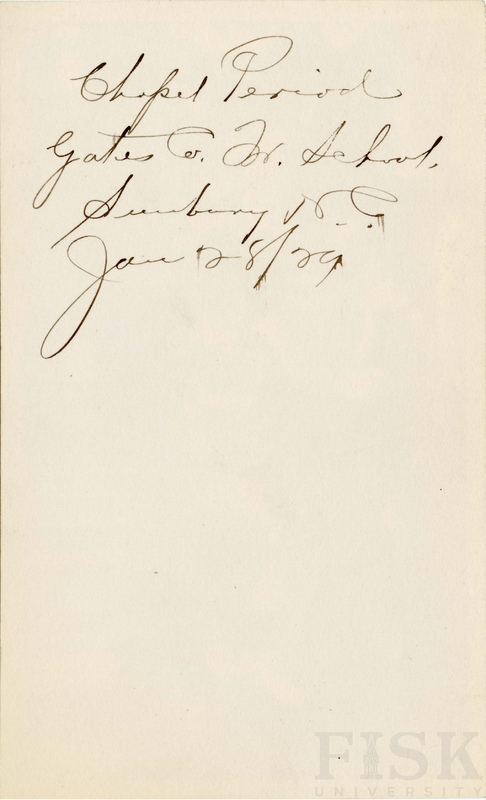 Chapel Period
Gates Co. Tr. School,
Sunbury N.C.
Jan 28/29
FISK
UNIVERSITY